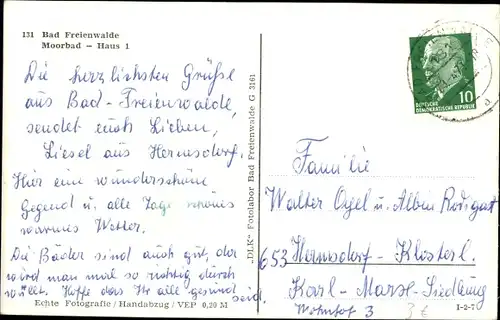 131 Bad Freienwalde
Moorbad - Haus 1
Die herzlichsten Grüße
aus Bad-Freienwalde,
sendet euch Lieben,
Liesel aus Hermsdorf.
Hier eine wunderschöne
Gegend u. alle Tage schönes
warmes Wetter.
Die Bäder sind auch gut, da
wird man mal so richtig durch
Hoffe das Ihr alle gesund
seid.
Echte Fotografie / Handabzug / VEP 0,20 M
"DLK" Fotolabor Bad Freienwalde G 3161
10
DEUTSCHE
DEMOKRATISCHE REPUBLIK
Familie
Walter u. Albin
653 Hermsdorf - Klosterl.
Karl-Marx-Siedlung
3
3€
I-2-7